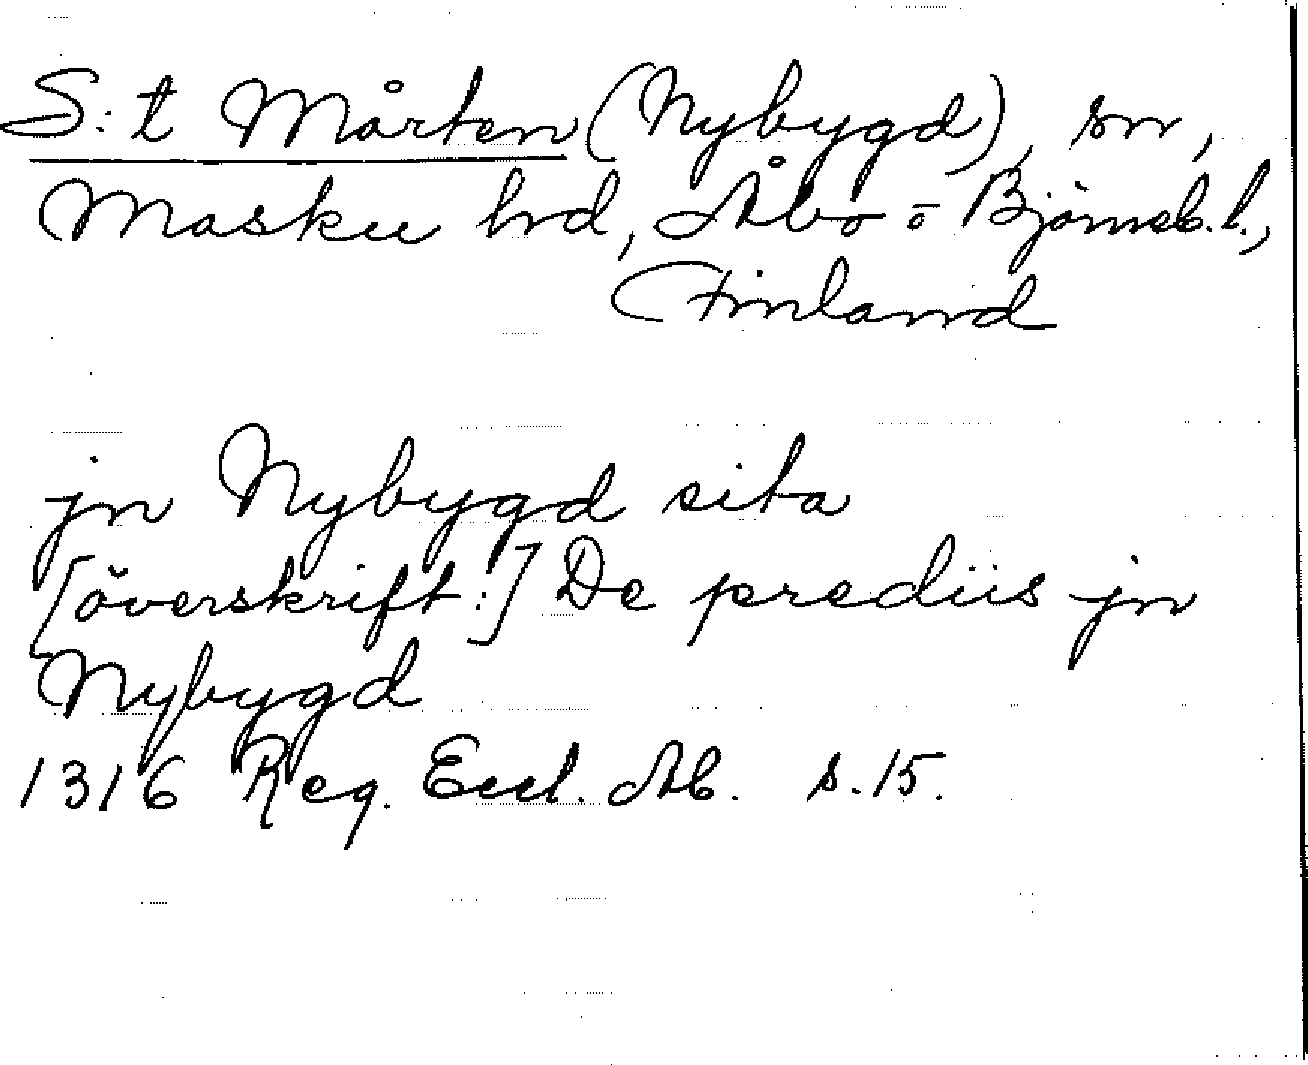 S:t Mårten (Nybygd), sn,
Masku hd, Åbo o Björneb. l.,
Finland
jn Nybygd sita
[överskrift:] De prediis jn
Nybygd
1316 Reg. Eccl. Ab. s. 15.